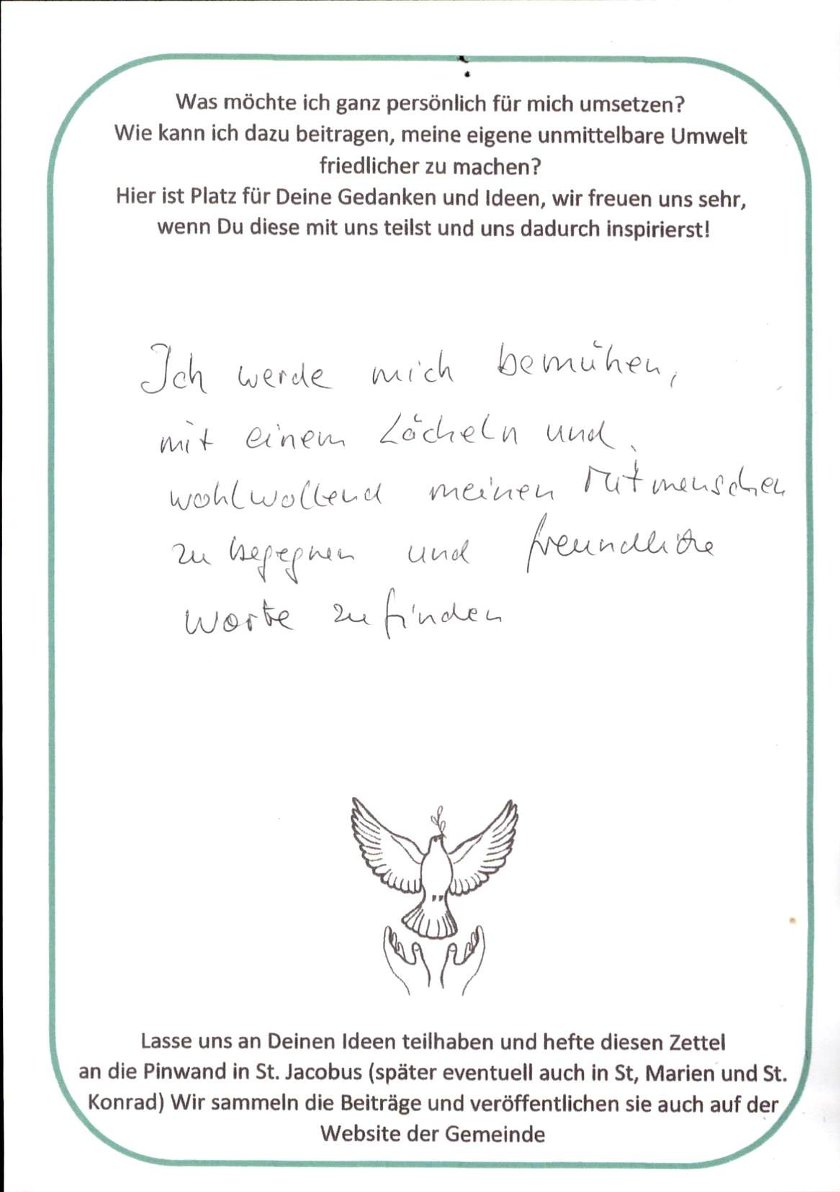 Was möchte ich ganz persönlich für mich umsetzen?
Wie kann ich dazu beitragen, meine eigene unmittelbare Umwelt
friedlicher zu machen?
Hier ist Platz für Deine Gedanken und Ideen, wir freuen uns sehr,
wenn Du diese mit uns teilst und uns dadurch inspirierst!
Ich werde mich bemühen,
mit einem Lächeln und
wohlwollend meinen Mitmenschen
zu begegnen und freundliche
Worte zu finden
Lasse uns an Deinen Ideen teilhaben und hefte diesen Zettel
an die Pinwand in St. Jacobus (später eventuell auch in St, Marien und St.
Konrad) Wir sammeln die Beiträge und veröffentlichen sie auch auf der
Website der Gemeinde